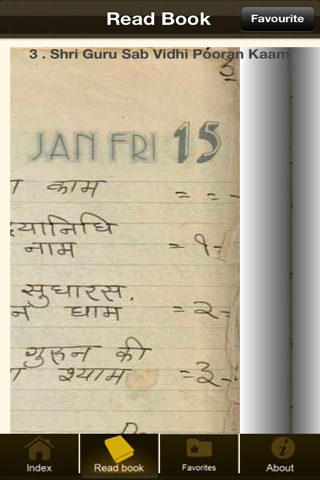 Read Book
Favourite
3 . Shri Guru Sab Vidhi Pooran Kaam
3
JAN FRI 15
काम = = -
यानिधि
नाम = १ =
सुधारस,
धाम = २ -
गुरुन की
श्याम = ३ -
Index
Read book
Favorites
About